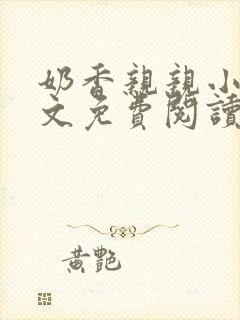 奶香親親小
文免費閱讀
黃艷